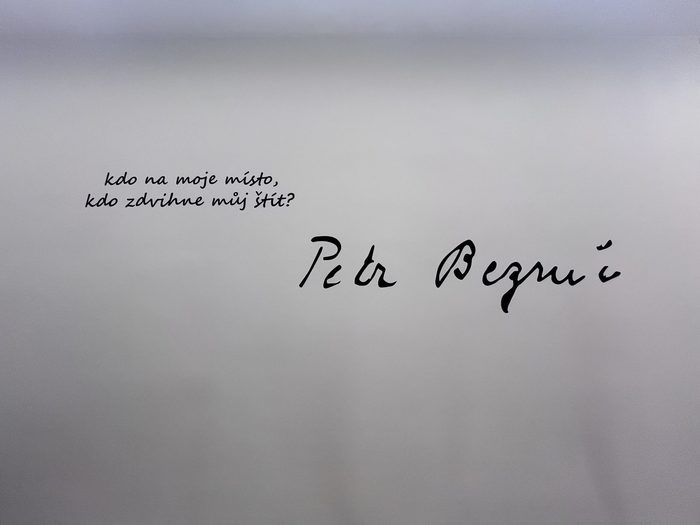 kdo na moje místo,
kdo zdvihne můj štít?
Petr Bezruč